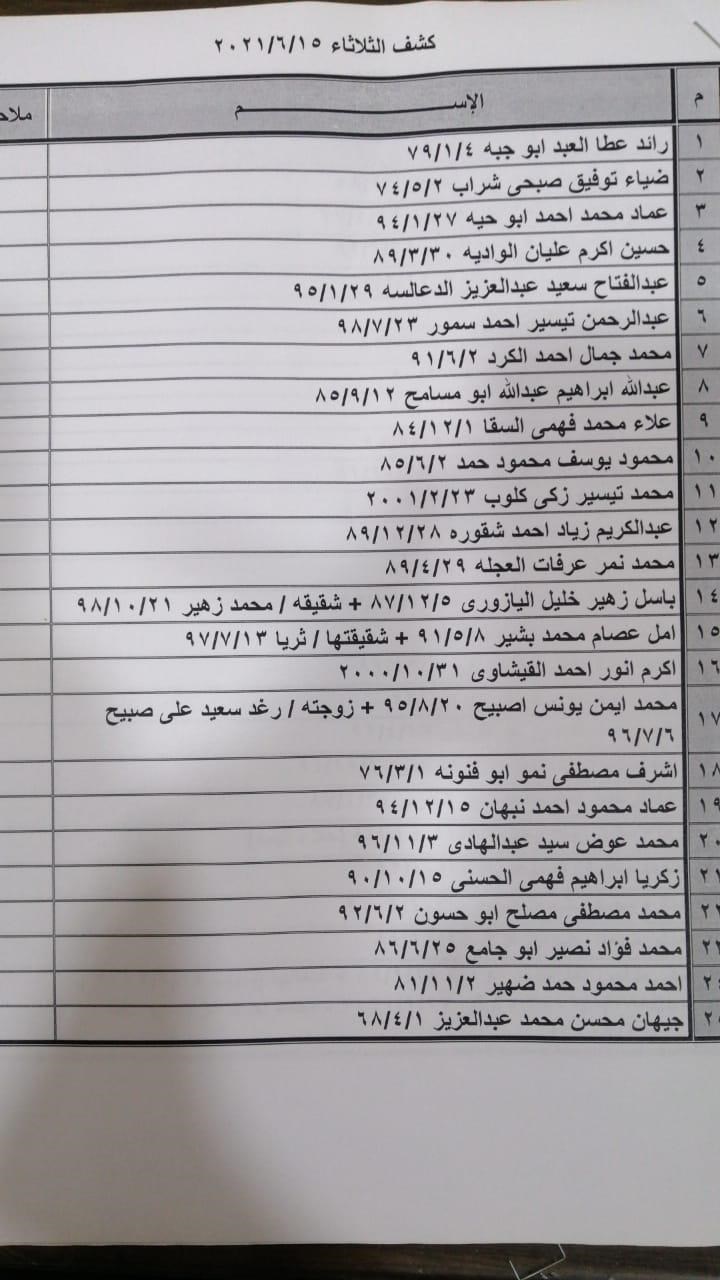 كشف الثلاثاء ٢٠٢١/٦/١٥
م الإســـــــــــــــــم
١ رائد عطا العبد ابو جبه ٧٩/١/٤
٢ ضياء توفيق صبحى شراب ٧٤/٥/٢
٣ عماد محمد احمد ابو حيه ٩٤/١/٢٧
٤ حسين اكرم عليان الواديه ٨٩/٣/٣٠
٥ عبدالفتاح سعيد عبدالعزيز الدعالسه ٩٥/١/٢٩
٦ عبدالرحمن تيسير احمد سمور ٩٨/٧/٢٣
٧ محمد جمال احمد الكرد ٩١/٦/٢
٨ عبدالله ابراهيم عبدالله ابو مسامح ٨٥/٩/١٢
٩ علاء محمد فهمى السقا ٨٤/١٢/١
١٠ محمود يوسف محمود حمد ٨٥/٦/٢
١١ محمد تيسير زكى كلوب ٢٠٠١/٢/٢٣
١٢ عبدالكريم زياد احمد شقوره ٨٩/١٢/٢٨
١٣ محمد نمر عرفات العجله ٨٩/٤/٢٩
١٤ باسل زهير خليل اليازورى ٨٧/١٢/٥ + شقيقه / محمد زهير ٩٨/١٠/٢١
١٥ امل عصام محمد بشير ٩١/٥/٨ + شقيقتها / ثريا ٩٧/٧/١٣
١٦ اكرم انور احمد القيشاوى ٢٠٠٠/١٠/٣١
١٧ محمد ايمن يونس اصبيح ٩٥/٨/٢٠ + زوجته / رغد سعيد على صبيح
٩٦/٧/٦
١٨ اشرف مصطفى نمو ابو فنونه ٧٦/٣/١
١٩ عماد محمود احمد نبهان ٩٤/١٢/١٥
٢٠ محمد عوض سيد عبدالهادى ٩٦/١١/٣
٢١ زكريا ابراهيم فهمى الحسنى ٩٠/١٠/١٥
٢٢ محمد مصطفى مصلح ابو حسون ٩٢/٦/٢
٢٣ محمد فؤاد نصير ابو جامع ٨٦/٦/٢٥
٢٤ احمد محمود حمد ضهير ٨١/١١/٢
٢٥ جيهان محسن محمد عبدالعزيز ٦٨/٤/١